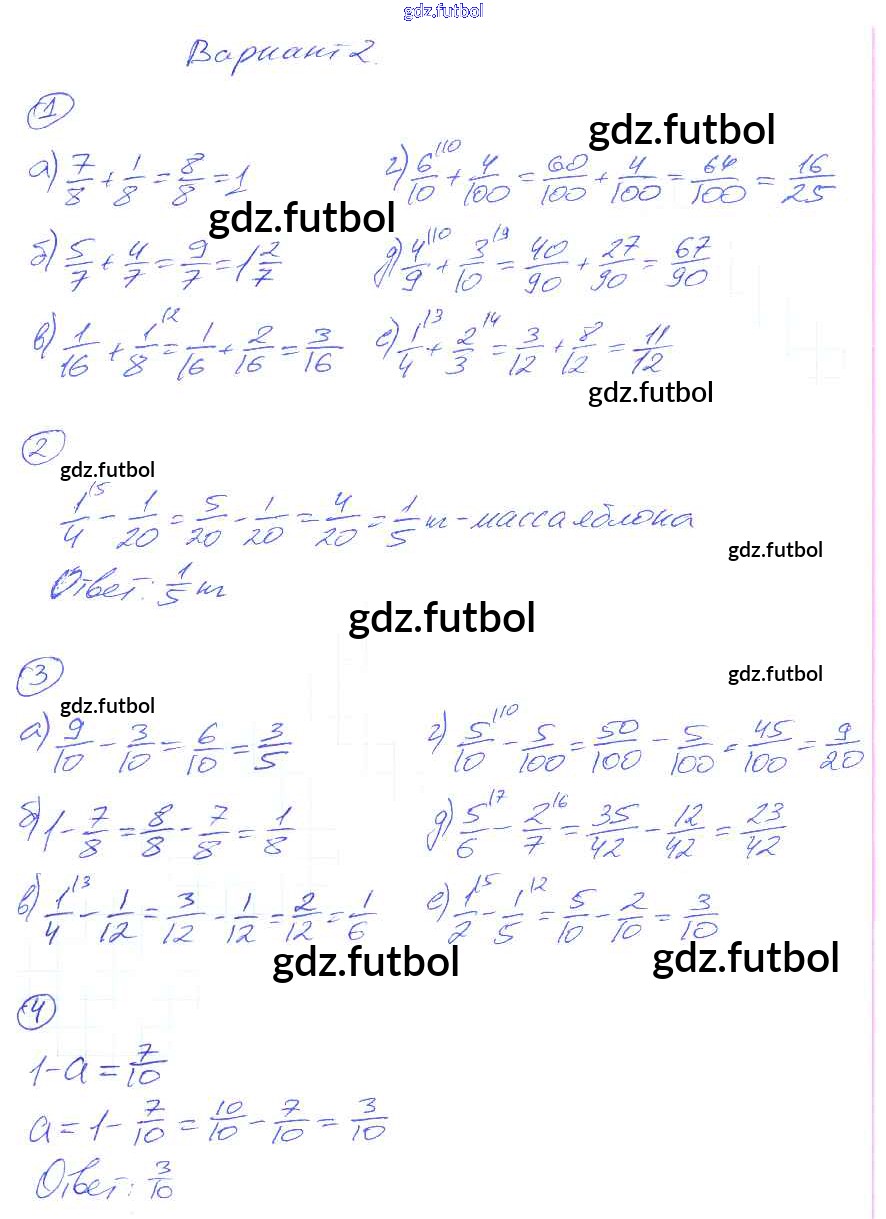 gdz.futbol
Вариант 2.
1
gdz.futbol
а) 7/8 + 1/8 = 8/8 = 1
г) 6/10 |10 + 4/100 = 60/100 + 4/100 = 64/100 = 16/25
gdz.futbol
б) 5/7 + 4/7 = 9/7 = 1 2/7
д) 4/9 |10 + 3/10 |9 = 40/90 + 27/90 = 67/90
в) 1/16 + 1/8 |2 = 1/16 + 2/16 = 3/16
е) 1/4 |3 + 2/3 |4 = 3/12 + 8/12 = 11/12
gdz.futbol
2
gdz.futbol
1/4 |5 - 1/20 = 5/20 - 1/20 = 4/20 = 1/5 кг - масса яблока
gdz.futbol
Ответ: 1/5 кг
gdz.futbol
3
gdz.futbol
gdz.futbol
а) 9/10 - 3/10 = 6/10 = 3/5
г) 5/10 |10 - 5/100 = 50/100 - 5/100 = 45/100 = 9/20
б) 1 - 7/8 = 8/8 - 7/8 = 1/8
д) 5/6 |7 - 2/7 |6 = 35/42 - 12/42 = 23/42
в) 1/4 |3 - 1/12 = 3/12 - 1/12 = 2/12 = 1/6
е) 1/2 |5 - 1/5 |2 = 5/10 - 2/10 = 3/10
gdz.futbol
gdz.futbol
4
1 - a = 7/10
a = 1 - 7/10 = 10/10 - 7/10 = 3/10
Ответ: 3/10